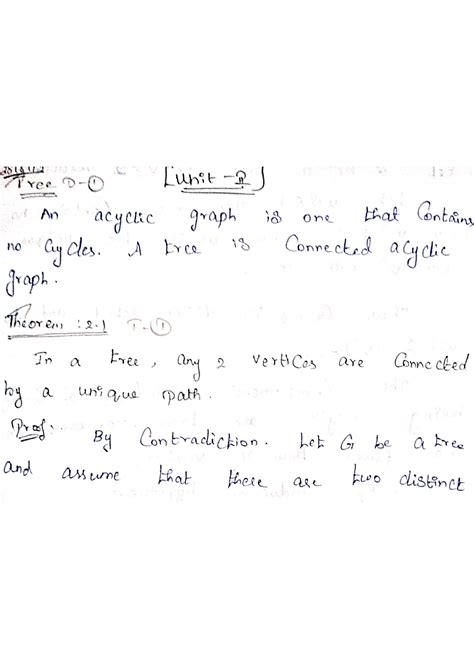 Tree D-①
[Unit-2]
An acyclic graph is one that Contains
no Cycles. A tree is Connected acyclic
graph.
Theorem: 2.1 T-①
In a tree, any 2 vertices are Connected
by a unique path.
Proof:
By Contradiction. Let G be a tree
and assume that there are two distinct